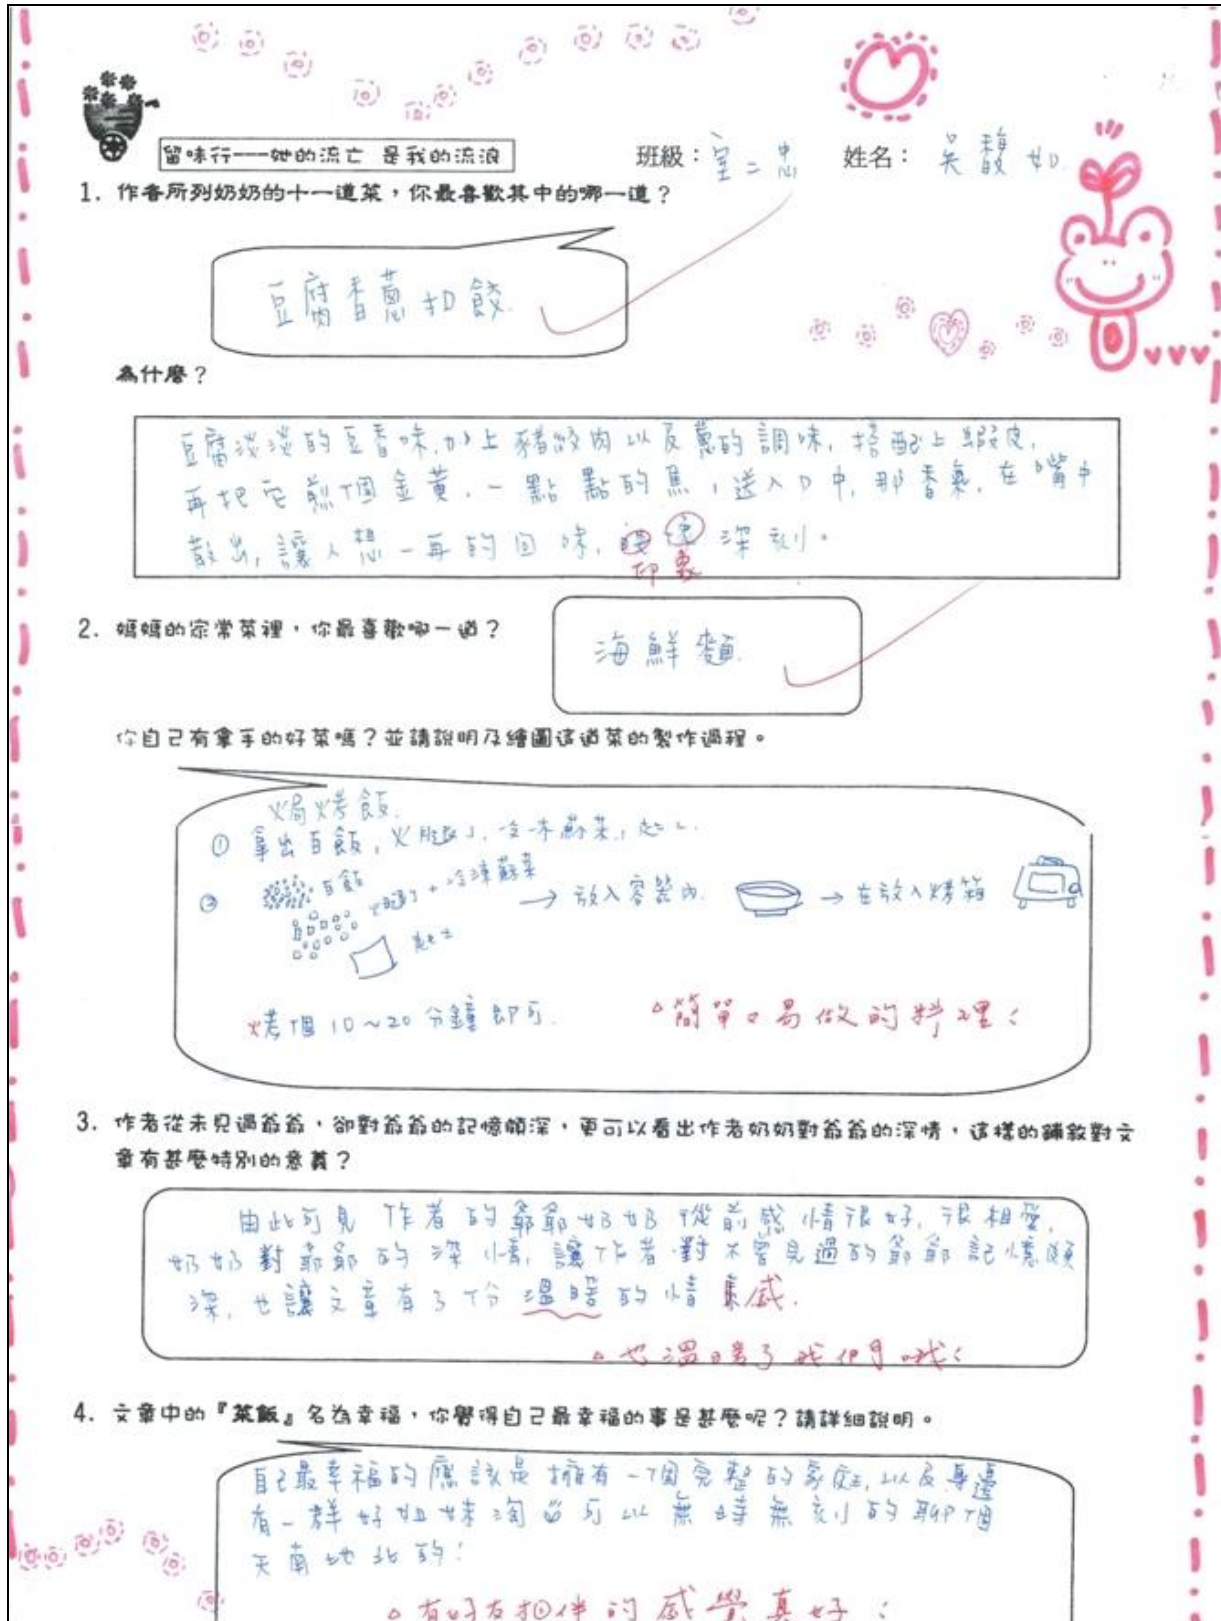 留味行---她的流亡 是我的流浪
班級：室二忠 姓名：吳馥如
1. 作者所列奶奶的十一道菜，你最喜歡其中的哪一道？
豆腐香蔥扣餃.
為什麼？
豆腐淡淡的豆香味,加上豬絞肉以及蔥的調味,搭配上蝦皮,
再把它煎個金黃.一點點的焦,送入口中,那香氣,在嘴中
散出,讓人想一再的回味, 深刻。
印象
2. 媽媽的家常菜裡，你最喜歡哪一道？
海鮮麵.
你自己有拿手的好菜嗎？並請說明及繪圖這道菜的製作過程。
焗烤飯.
① 拿出白飯,火腿丁,冷凍蔬菜,起士.
② 白飯
火腿丁 + 冷凍蔬菜
起士
→ 放入容器內. → 在放入烤箱
烤個10~20分鐘即可.
簡單易做的料理!
3. 作者從未見過爺爺，卻對爺爺的記憶頗深，更可以看出作者奶奶對爺爺的深情，這樣的鋪敘對文
章有甚麼特別的意義？
由此可見 作者的爺爺奶奶從前感情很好,很相愛,
奶奶對爺爺的深情,讓作者對不曾見過的爺爺記憶頗
深,也讓文章有了份溫暖的情感.
也溫暖了我們哦!
4. 文章中的『菜飯』名為幸福，你覺得自己最幸福的事是甚麼呢？請詳細說明。
自己最幸福的應該是擁有一個完整的家庭,以及身邊
有一群好姐妹淘 可以無時無刻的聊個
天南地北的!
有好友相伴的感覺真好!